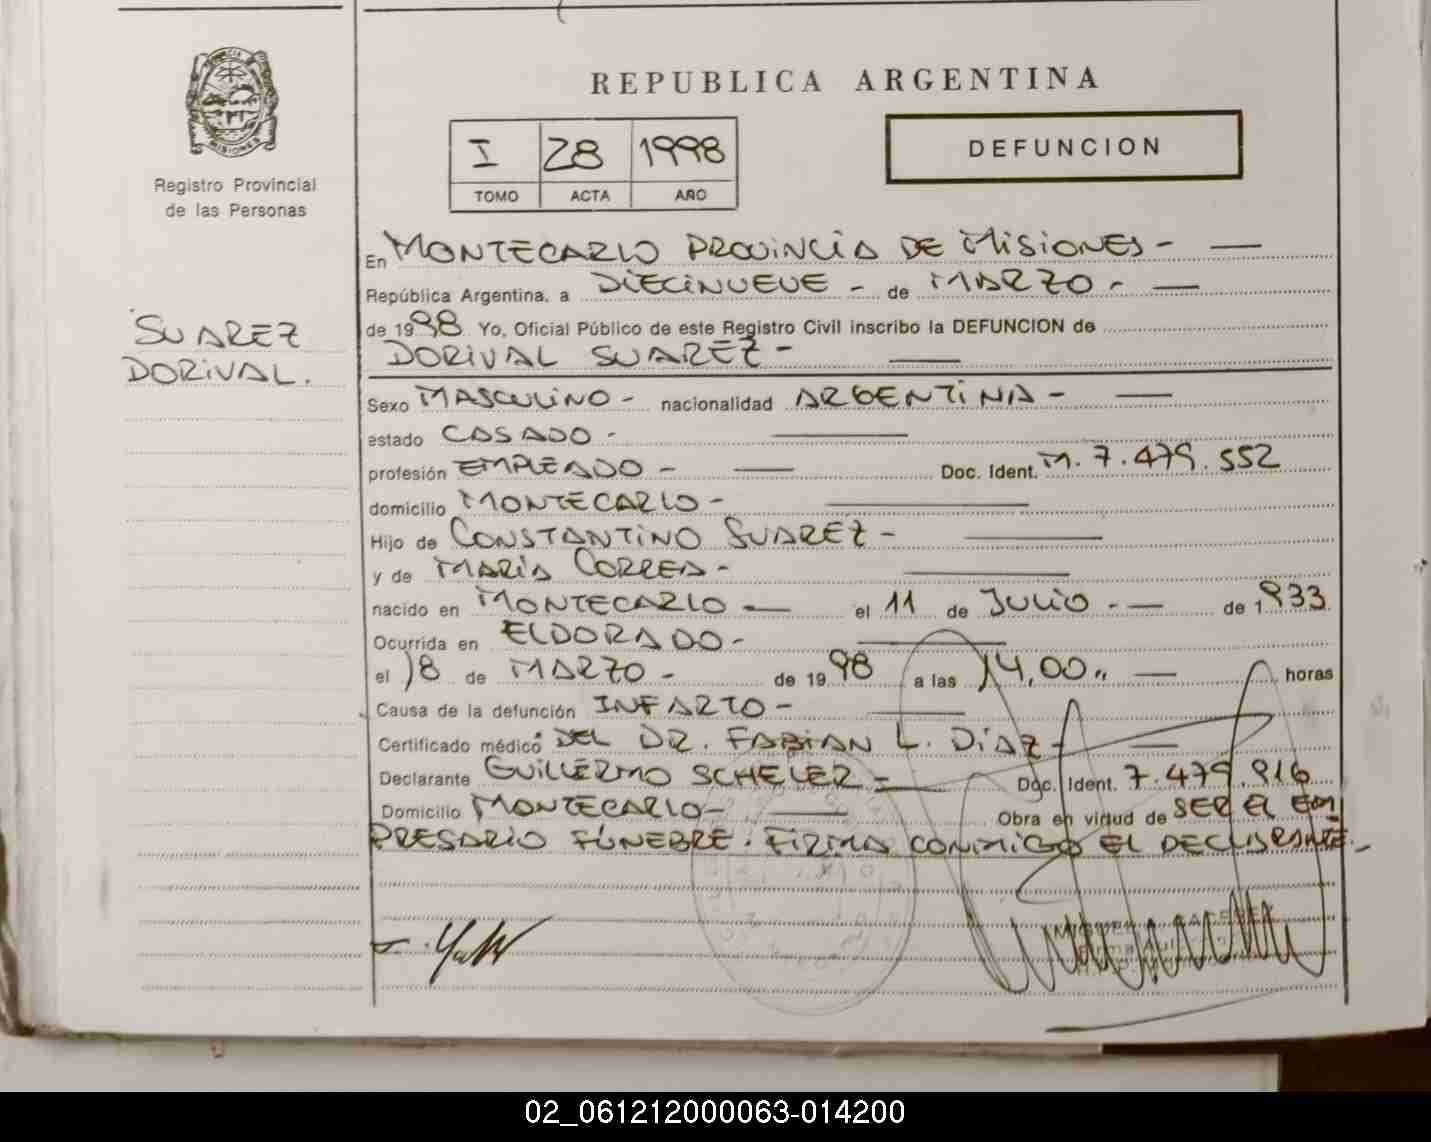 REPUBLICA ARGENTINA
I 28 1998
TOMO ACTA AÑO
DEFUNCION
MISIONES
Registro Provincial
de las Personas
SUAREZ
DORIVAL.
En MONTECARLO PROVINCIA DE MISIONES -
República Argentina, a DIECINUEVE - de MARZO -
de 1998 Yo, Oficial Público de este Registro Civil inscribo la DEFUNCION de
DORIVAL SUAREZ -
Sexo MASCULINO - nacionalidad ARGENTINA -
estado CASADO -
profesión EMPLEADO - Doc. Ident. M. 7.479.552
domicilio MONTECARLO -
Hijo de CONSTANTINO SUAREZ -
y de MARIA CORREA -
nacido en MONTECARLO - el 11 de JULIO - de 1.933
Ocurrida en ELDORADO -
el 18 de MARZO - de 1998 a las 14,00 horas
Causa de la defunción INFARTO -
Certificado médico DEL DR. FABIAN L. DIAZ -
Declarante GUILLERMO SCHELER = Doc. Ident. 7.479.916
Domicilio MONTECARLO - Obra en virtud de SER EL EM
PRESARIO FÚNEBRE. FIRMA CONMIGO EL DECLARANTE.
02_061212000063-014200